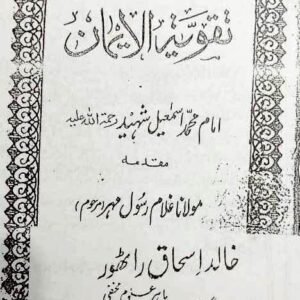 تقویۃ الایمان
امام محمد اسمٰعیل شہید رحمۃ اللہ علیہ
مقدمہ
مولانا غلام رسول مہر (مرحوم)
خالد اسحاق راٹھور